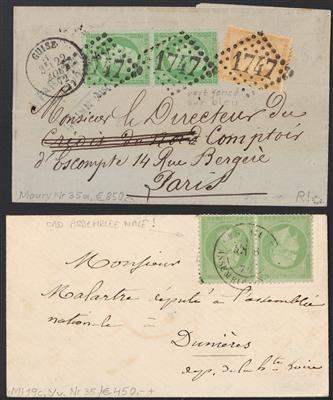 GUISE
22
AOUT
72
1747 1747 1747
vert foncé
sur bleu
Monsieur le Directeur du
Comptoir
d'Escompte 14 Rue Bergère
Paris
Maury Nr 35a, € 850.-
R!
CAD ASSEMBLEE NALE!
Monsieur
Malartre député à l'assemblée
nationale =
Dunières
dép. de la hte Loire
Mi 19c, Yv. Nr 35/ € 450.-+